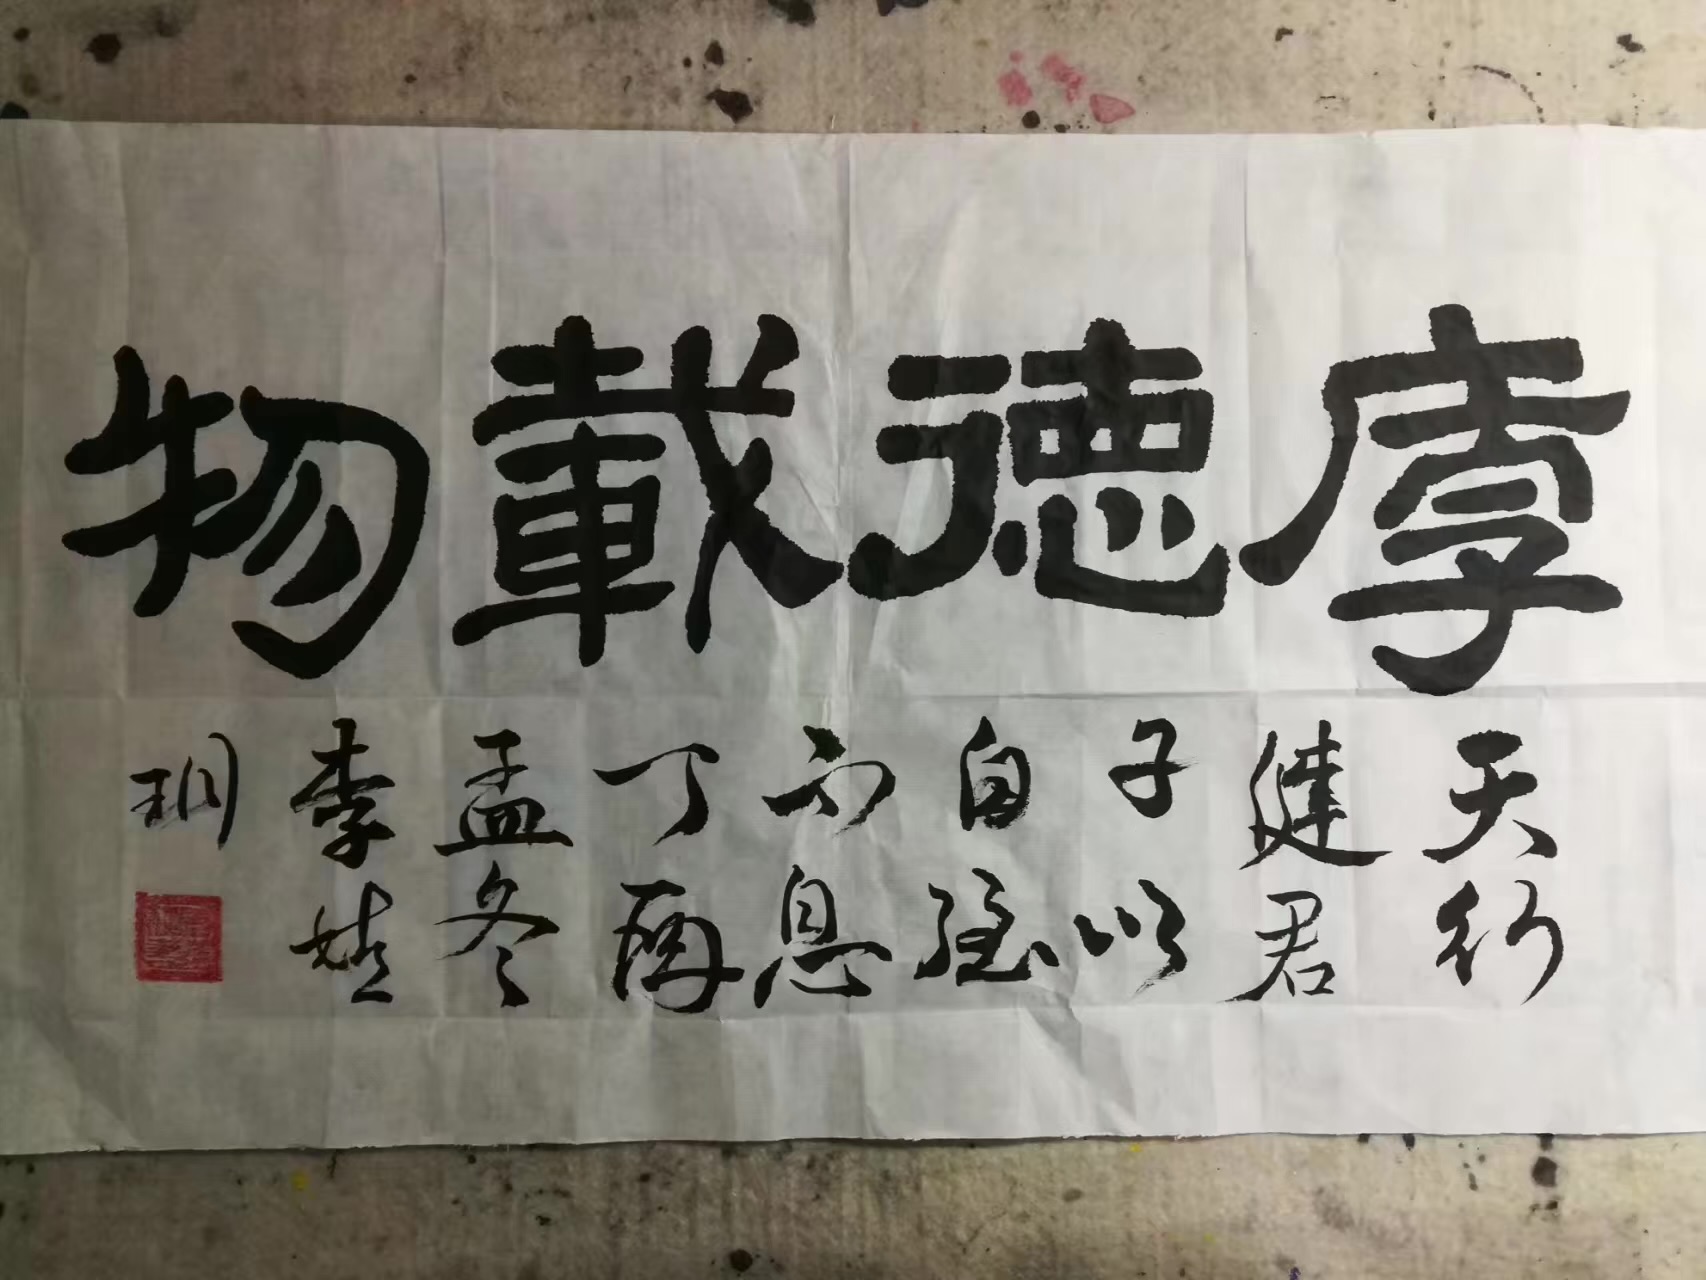 厚德載物
天行
健君
子以
自強
不息
丁酉
孟冬
李